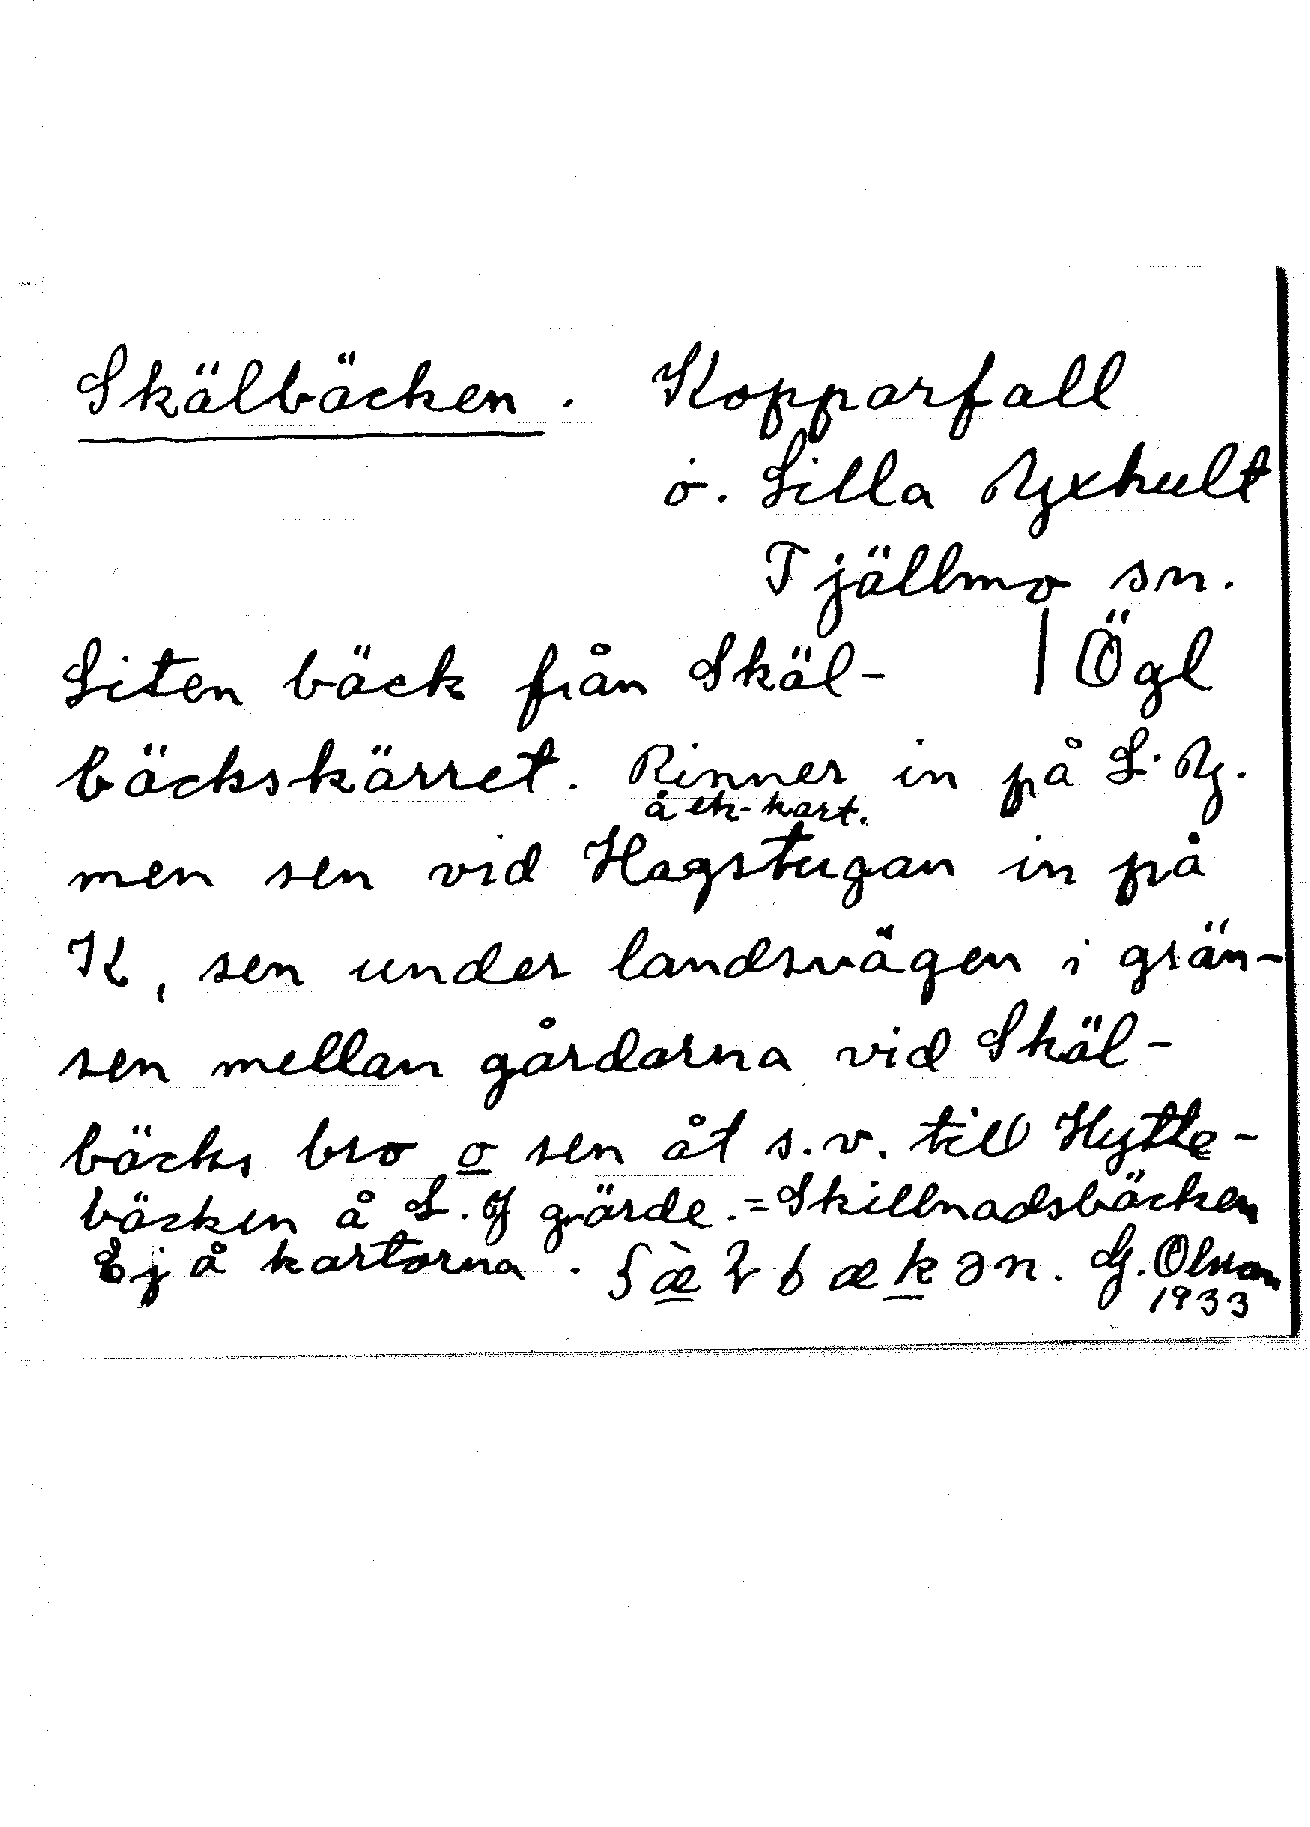 Skälbäcken. Kopparfall
o. Lilla Ryxhult
Tjällmo sn.
Liten bäck från Skäl- | Ögl
bäckskärret. Rinner in på L. Ry.
å ek-kart.
men sen vid Hagstugan in på
K, sen under landsvägen i grän-
sen mellan gårdarna vid Skäl-
bäcks bro o sen åt s.v. till Hytte-
bäcken å L. gärde. = Skillnadsbäcken
Ej å kartorna. G. Olsson
1933